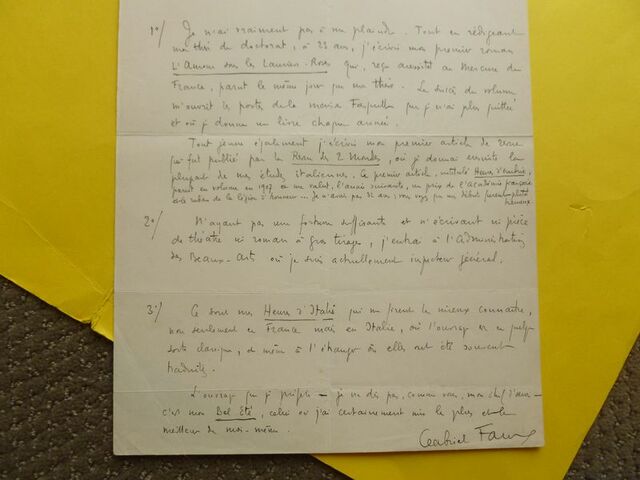 1°/ Je n'ai vraiment pas à me plaindre. Tout en rédigeant
ma thèse de doctorat, à 23 ans, j'écrivis mon premier roman
L'Amour sous les Lauriers-Roses qui, reçu aussitôt au Mercure de
France, parut le même jour que ma thèse. Le succès du volume
m'ouvrit les portes de la maison Fasquelle que je n'ai plus quittée
et où je donne un livre chaque année.
Tout jeune également j'écrivis mon premier article de revue
qui fut publié par la Revue des 2 Mondes, où je donnai ensuite la
plupart de mes études italiennes. Ce premier article, intitulé Heures d'Ombrie,
parut en volume en 1907 et me valut, l'année suivante, un prix de l'Académie française
et le ruban de la légion d'honneur... Je n'avais pas 32 ans; vous voyez que mes débuts furent plutôt
heureux.
2°/ N'ayant pas une fortune suffisante et n'écrivant ni pièces
de théâtre ni romans à gros tirage, j'entrai à l'Administration
des Beaux-Arts où je suis actuellement inspecteur général.
3°/ Ce sont mes Heures d'Italie qui me firent le mieux connaître,
non seulement en France mais en Italie, où l'ouvrage est en quelque
sorte classique, et même à l'étranger où elles ont été souvent
traduites.
L'ouvrage que je préfère – je ne dis pas, comme vous, mon chef d'œuvre –
c'est mon Bel Été, celui où j'ai certainement mis le plus et le
meilleur de moi-même.
Gabriel Faure